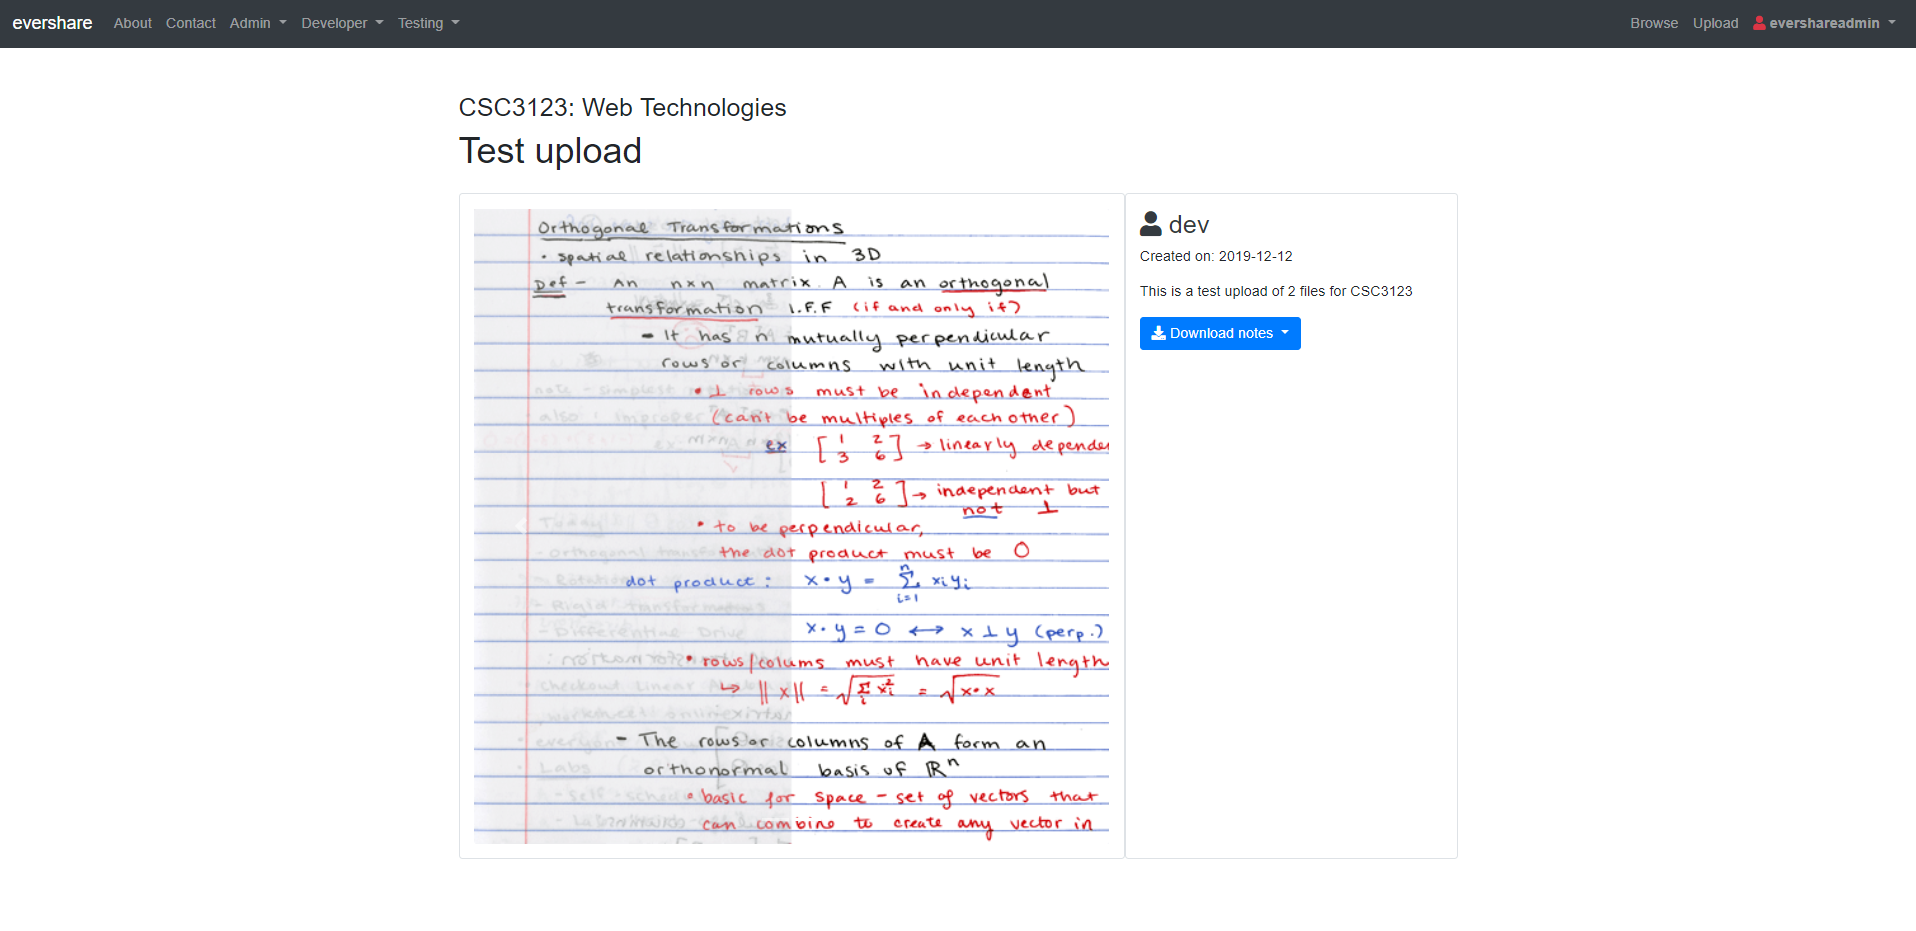 evershare About Contact Admin Developer Testing Browse Upload evershareadmin
CSC3123: Web Technologies
Test upload
Orthogonal Transformations
• spatial relationships in 3D
Def - An n×n matrix A is an orthogonal
transformation I.F.F (if and only if)
- It has n mutually perpendicular
rows or columns with unit length
• ⊥ rows must be independent
(can't be multiples of each other)
ex [1 2
3 6] → linearly depende
[1 2
2 6] → independent but
not ⊥
• to be perpendicular,
the dot product must be 0
dot product: x • y = n∑i=1 xiyi
x • y = 0 ↔ x ⊥ y (perp.)
• rows/colums must have unit length
↳ ||x|| = √∑i xi² = √x•x
- The rows or columns of A form an
orthonormal basis of ℝⁿ
• basic for space - set of vectors that
can combine to create any vector in
dev
Created on: 2019-12-12
This is a test upload of 2 files for CSC3123
Download notes